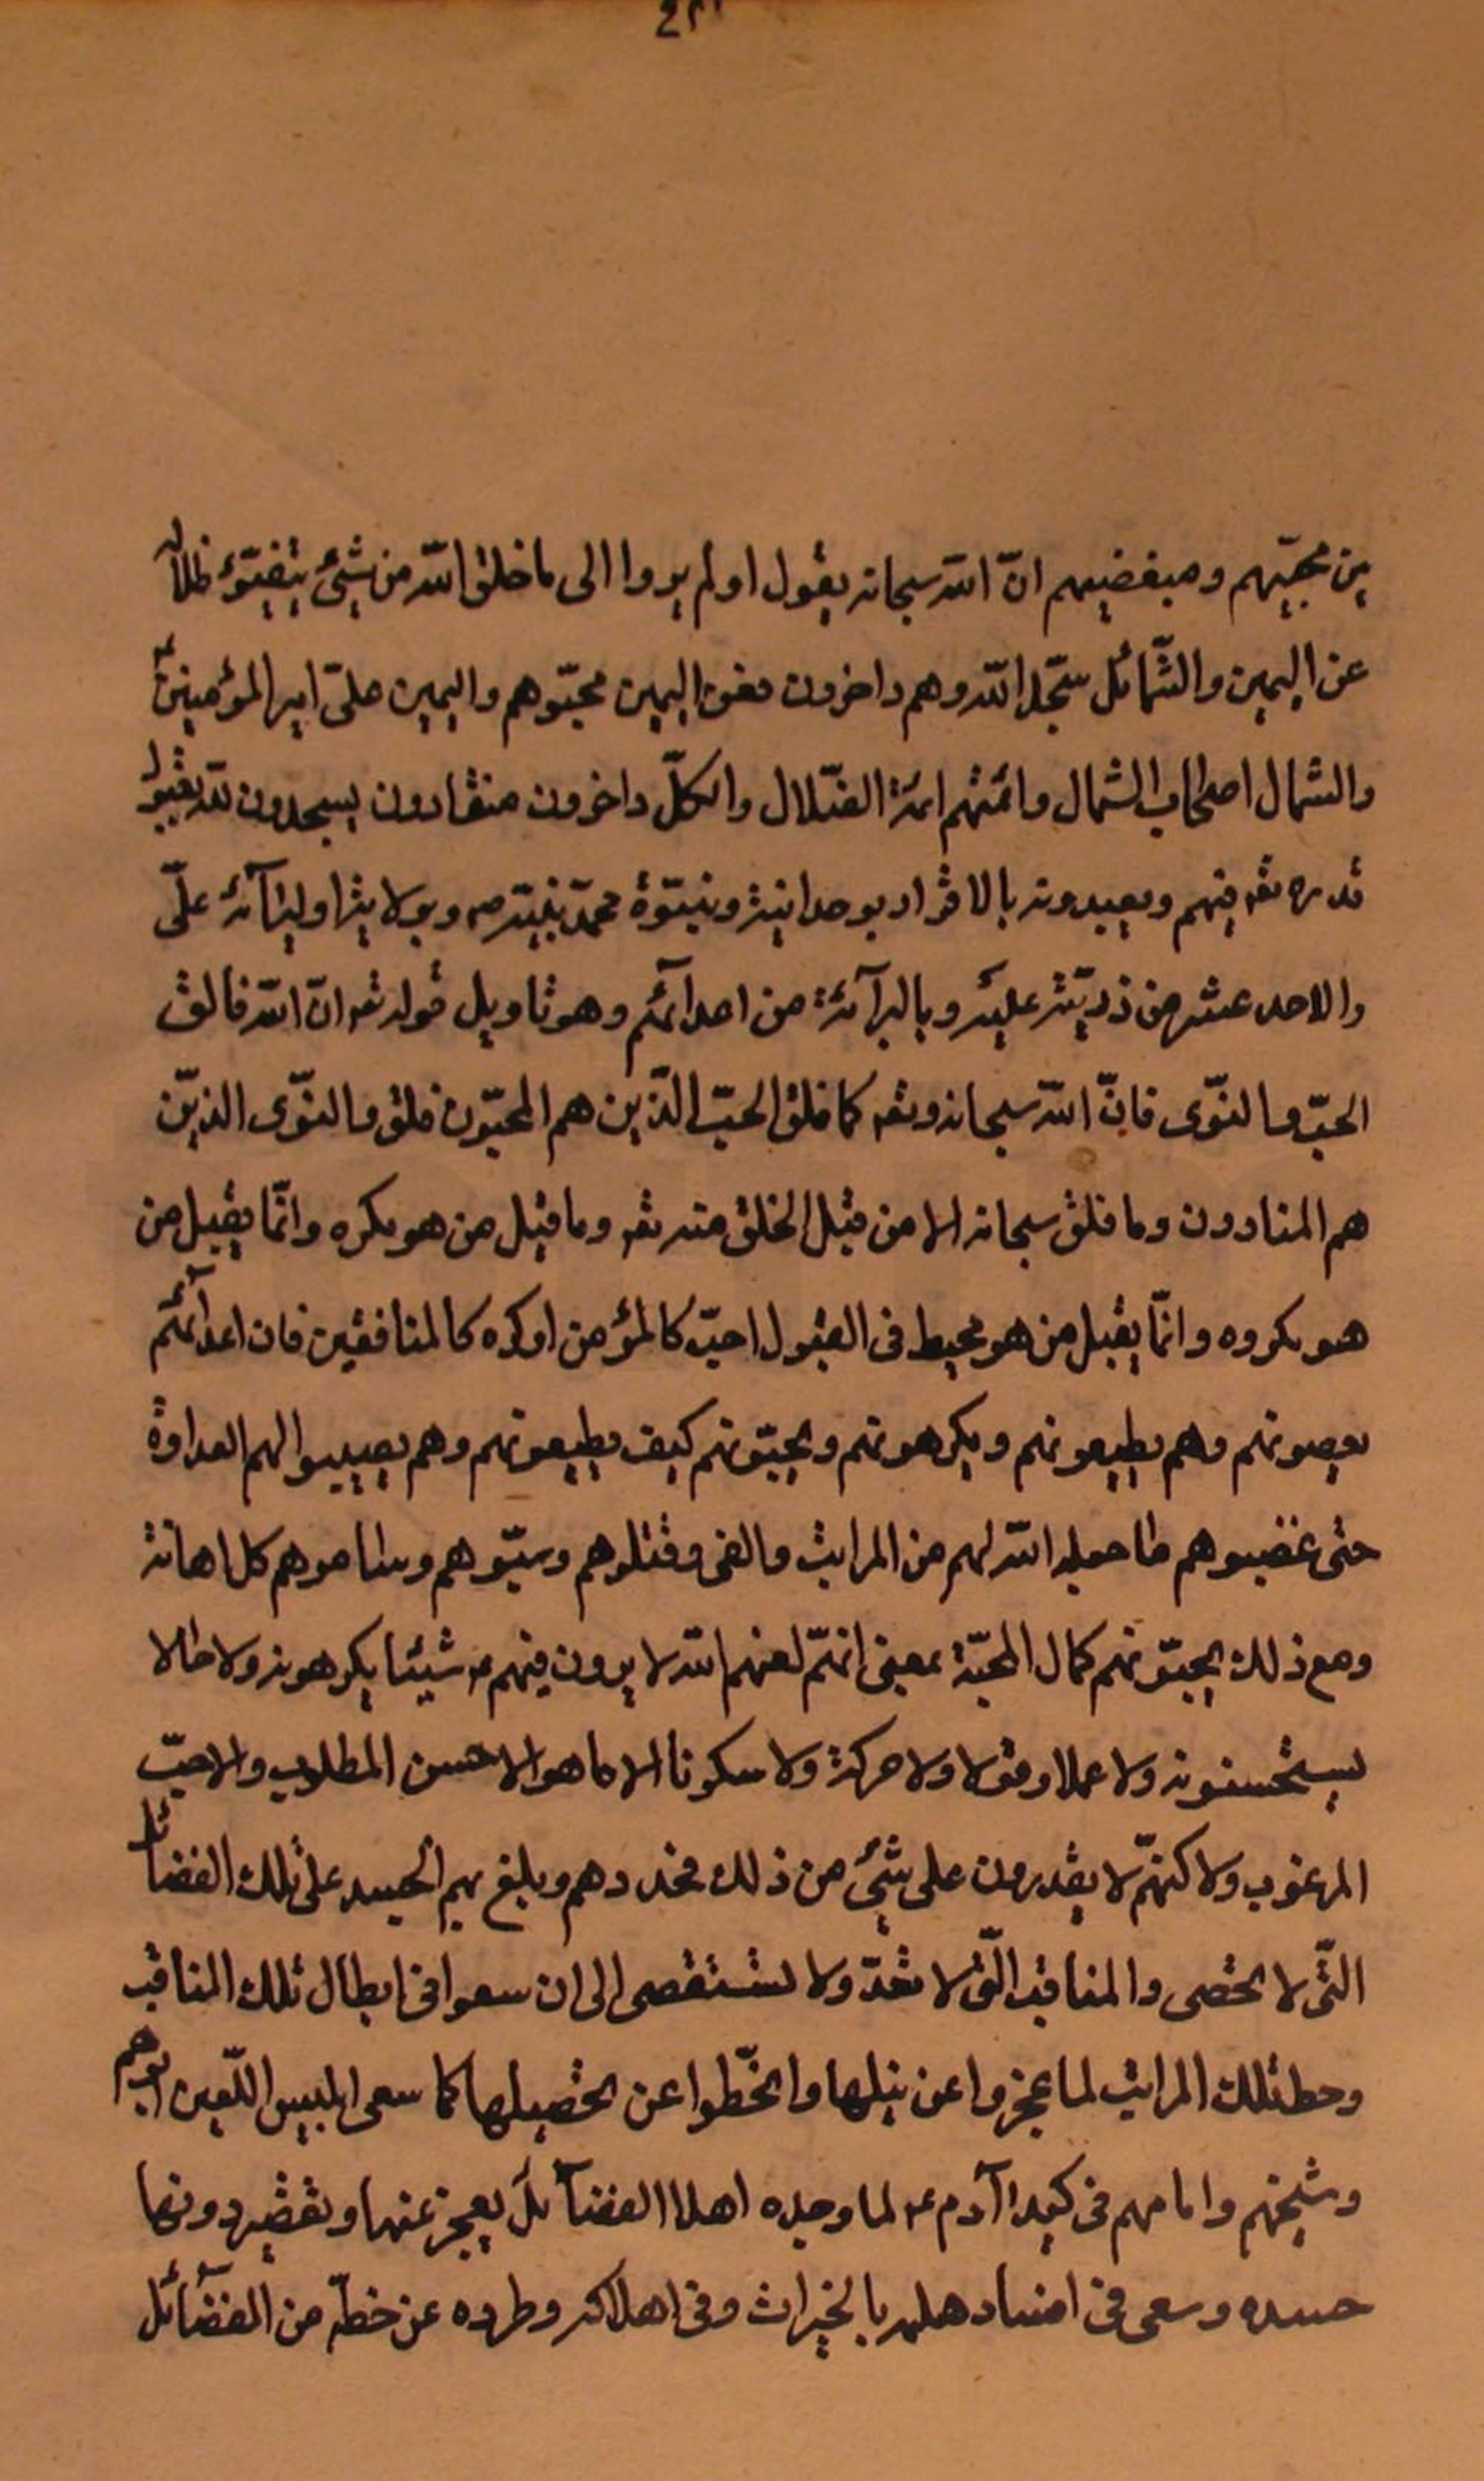 بين محبّيهم ومبغضيهم انّ الله سبحانه يقول اولم يروا الى ما خلق الله من شئ يتفيّؤ ظلاله
عن اليمين والشّمائل سجّدا لله وهم داخرون فعن اليمين محبّوهم واليمين علىّ امير المؤمنين
والشمال اصحاب الشمال وائمّتهم ائمة الضّلال والكلّ داخرون منقادون يسجدون لله بقبول
قدره تعـ فيهم ويعبدونه بالاقرار بوحدانيته وبنبوّة محمّد نبيّه صـ وبولاية اوليآئه علىّ
والاحد عشر من ذريّته عليهم وبالبرآئة من اعدآئهم وهو تاويل قوله تعـ انّ الله فالق
الحبّ والنّوى فانّ الله سبحانه وتعـ كما فلق الحبّ الّذين هم المحبّون فلق والنّوى الذين
هم المنادون وما فلق سبحانه الا من قبل الخلق منه تعـ وما قبل من هو مكره وانّما يقبل من
هو مكروه وانّما يقبل من هو محيط فى القبول احبّ كالمؤمن او كره كالمنافقين فان اعدآئهم
يعصونهم وهم يطيعونهم ويكرهونهم ويحبّونهم كيف يطيعونهم وهم يصيبوا لهم العداوة
حتى غصبوهم ما جعله الله لهم من المراتب والفئ وقتلوهم وسبّوهم وساموهم كل اهانة
ومع ذلك يحبّونهم كمال المحبّة بمعنى انهّم لعنهم الله لا يرون فيهم عـ شيئا يكرهونه ولا حالا
يستحسنونه ولا عملا وقولا ولا حركة ولا سكونا الا ما هو الاحسن المطلوب والاحبّ
المرغوب ولاكنهّم لا يقدرون على شئ من ذلك وبلغ بهم الحسد على تلك الفضائل
التّى لا تحصى والمناقب الّتى لا تعدّ ولا تستقصى الى ان سعوا فى ابطال تلك المناقب
وحط تلك المراتب لما عجزوا عن نيلها وانحّطوا عن تحصيلها كما سعى ابليس اللّعين ابوهم
وشيخهم وامامهم فى كيد اآدم عـ لما وجده اهلا الفضآئل يعجز عنها ويقصر دونها
حسده وسعى فى افساد بالخيرات وفى اهلاكه وطرده عن خطّه من الفضآئل